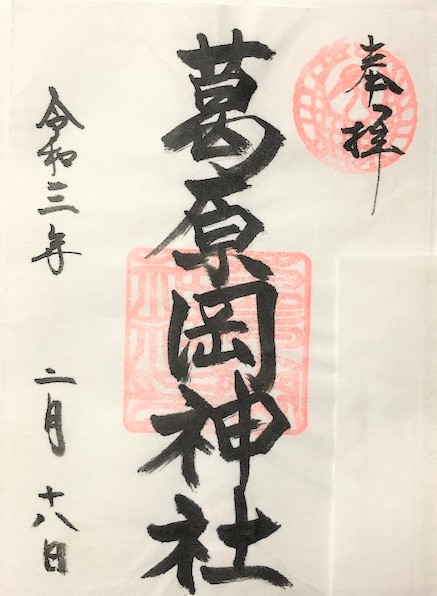 奉拝
葛原岡神社
令和三年 二月 十八日